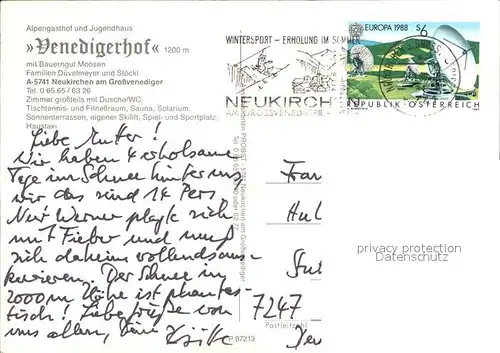 Alpengasthof und Jugendhaus
»Venedigerhof« 1200 m
mit Bauerngut Moosen
Familien Düvelmeyer und Stöckl
A-5741 Neukirchen am Großvenediger
Tel. 0 65 65 / 63 26
Zimmer großteils mit Dusche/WC,
Tischtennis- und Fitneßraum, Sauna, Solarium,
Sonnenterrassen, eigener Skilift, Spiel- und Sportplatz,
Haustaxi
WINTERSPORT - ERHOLUNG IM SOMMER
NEUKIRCH
AM GROSSVENEDIGER
EUROPA 1988
S 6
REPUBLIK ÖSTERREICH
Liebe Mutter!
Wir haben 4 erholsame
Tage im Schnee hinter uns,
wir das sind 14 Pers.
Nur Werner plagte sich
mit Fieber und muß
sich daheim vollends aus-
kurieren. Der Schnee in
2000 m Höhe ist phantas-
tisch! Liebe Grüße von
uns allen, Deine
Frau
7247
Postleitzahl
P 87213
privacy protection